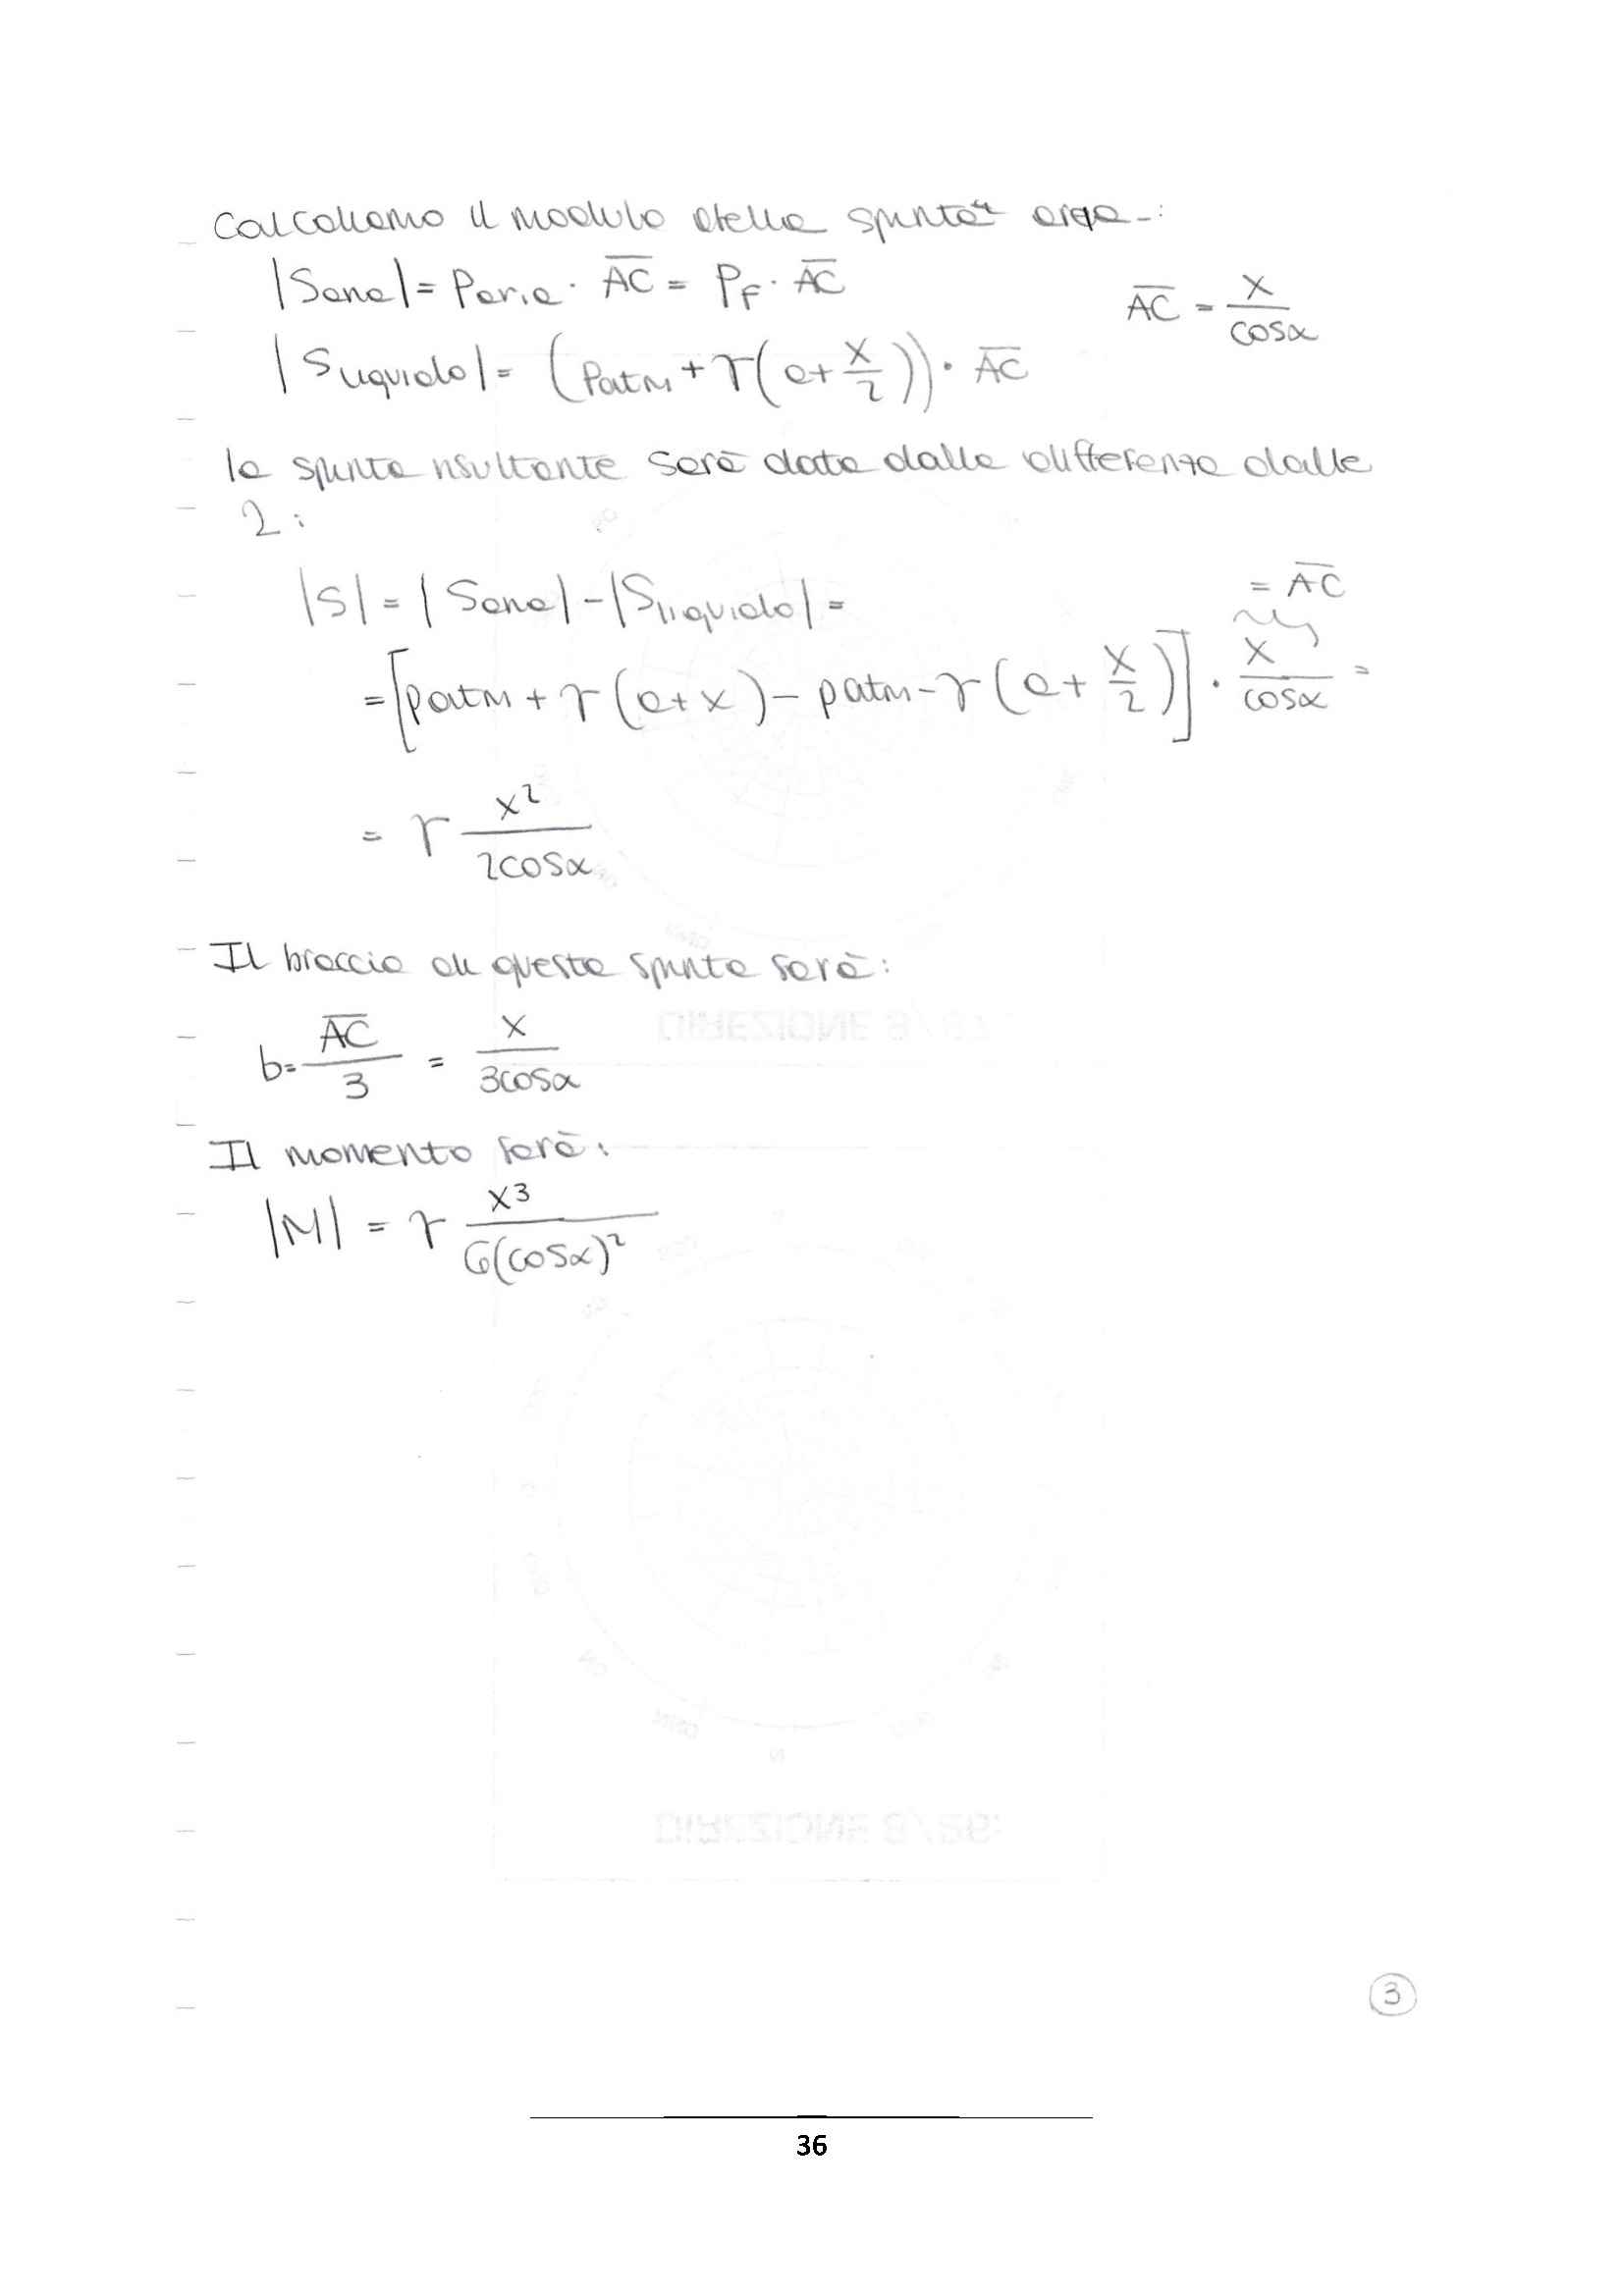 Calcoliamo il modulo della spinta aria:
|Saria| = Paria · A̅C̅ = PF · A̅C̅
A̅C̅ = x/cosα
|Sliquido| = (Patm + γ(a + x/2)) · A̅C̅
la spinta risultante sarà data dalla differenza dalle
2:
|S| = |Saria| - |Sliquido| =
= A̅C̅
= [patm + γ(a+x) - patm - γ(a + x/2)] · x/cosα =
= γ x²/2cosα
Il braccio di questa spinta sarà:
b = A̅C̅/3 = x/3cosα
Il momento sarà:
|M| = γ x³/6(cosα)²
3
36